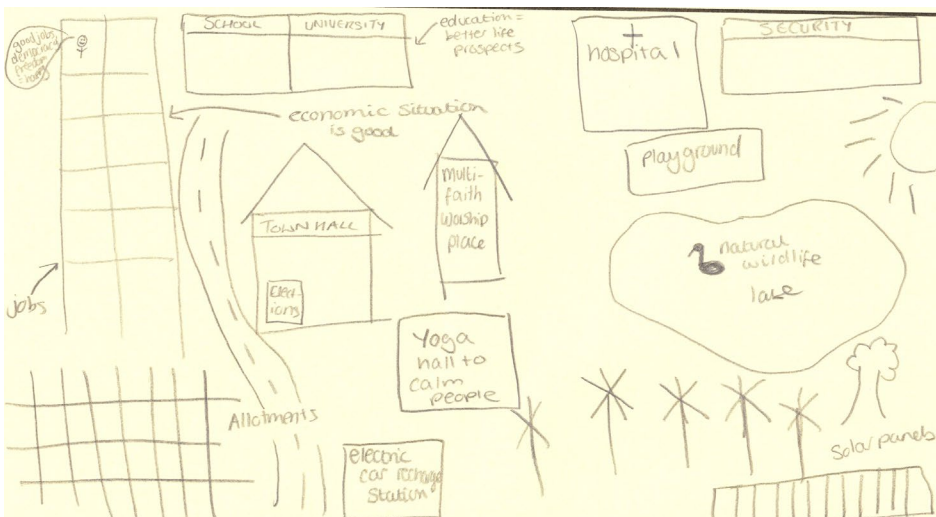 good jobs
democracy
freedom
SCHOOL
UNIVERSITY
education =
better life
prospects
hospital
SECURITY
economic situation
is good
playground
multi-
faith
worship
place
TOWN HALL
Elect-
ions
natural
wildlife
lake
jobs
Yoga
hall to
calm
people
Allotments
electric
car recharge
station
solar panels